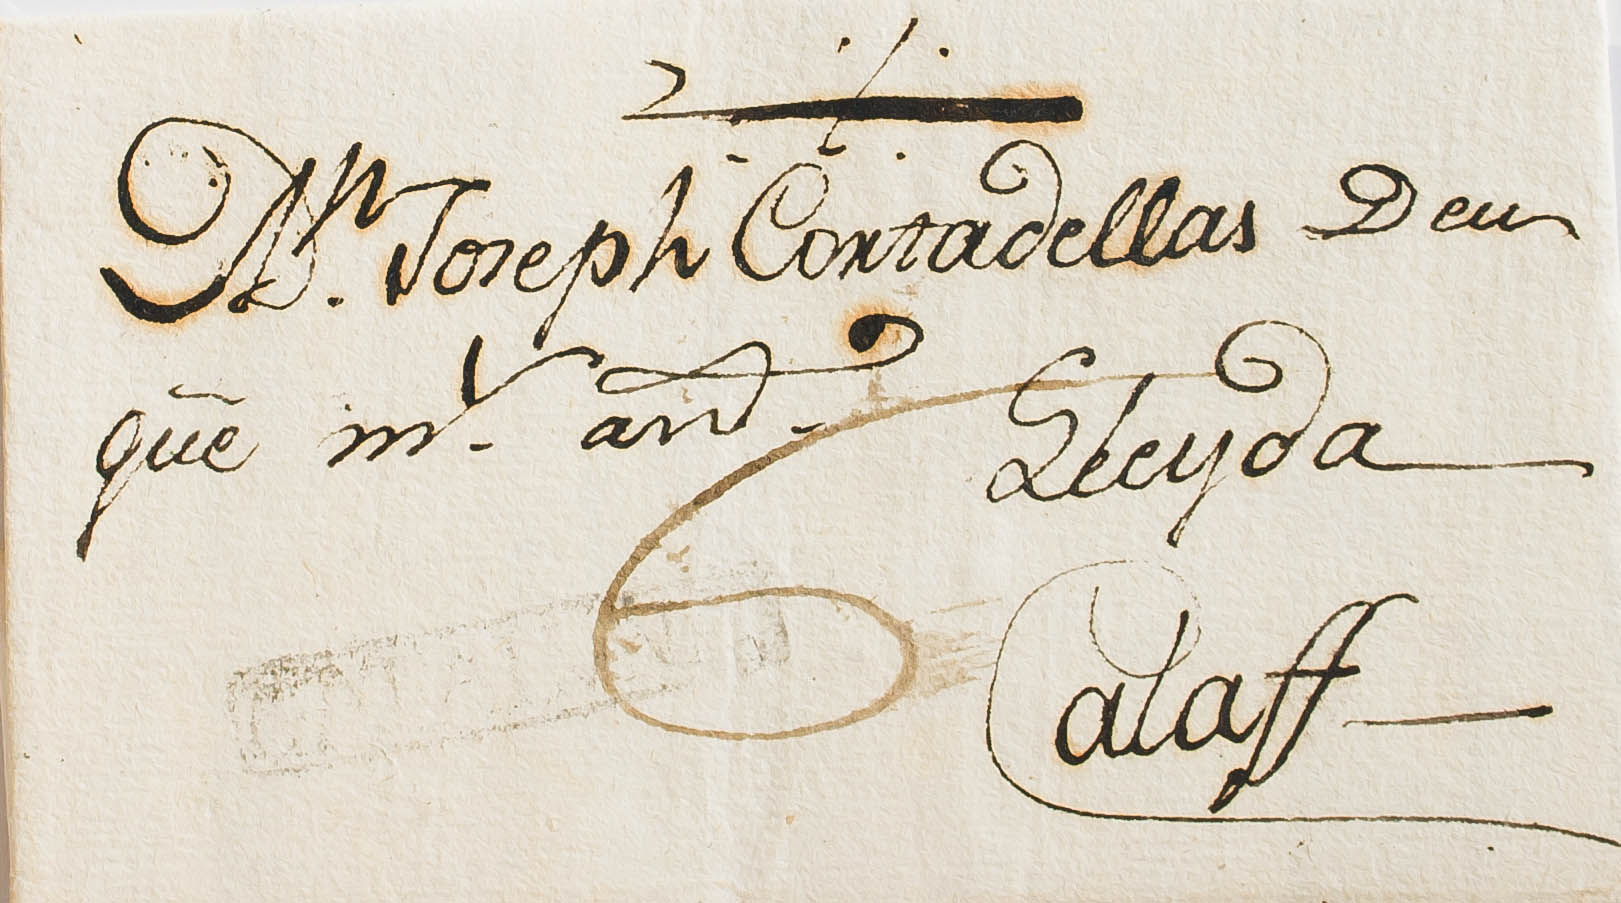 Dn. Joseph Contadellas Deu
que ms. and.
Lleyda
6
Calaff